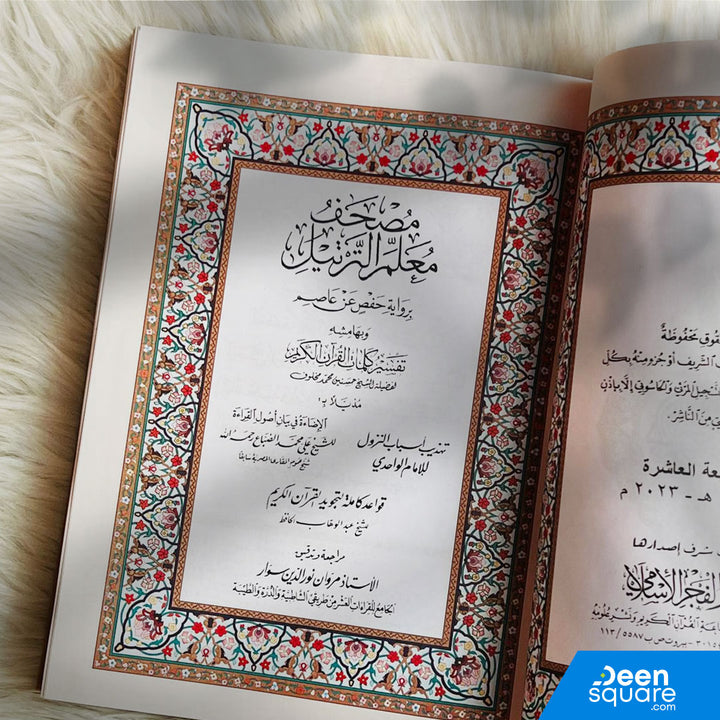 مُصْحَفُ
مُعَلِّمِ التَّرْتِيلِ
بِرِوَايَةِ حَفْصٍ عَنْ عَاصِمٍ
وبهامشه
تَفْسِيرُ كَلِمَاتِ الْقُرْآنِ الْكَرِيمِ
لفضيلة الشيخ حسنين محمد مخلوف
مذيلا بـ:
الإضاءة في بيان أصول القراءة
للشيخ علي محمد الضباع رحمه الله
شيخ عموم المقارئ المصرية سابقا
تهذيب أسباب النزول
للإمام الواحدي
قواعد كاملة لتجويد القرآن الكريم
للشيخ عبد الوهاب الحافظ
مراجعة وتدقيق:
الأستاذ مروان نور الدين سوار
الجامع للقراءات العشر من طريقي الشاطبية والدرة والطيبة
قوق مَحْفُوظَةٌ
الشَّرِيف أَوْ جُزءٍ مِنْهُ بِكُلِّ
المرئي وَالحَاسُوبي إلَّا بِإِذْنٍ
مِنَ النَّاشِرِ.
عة العاشرة
هـ - ٢٠٢٣ م
شرف إصدارها
الفجر الإسلامي
بيروت ص ب ١١٣/٥٥٨٧
Deen
square
.com